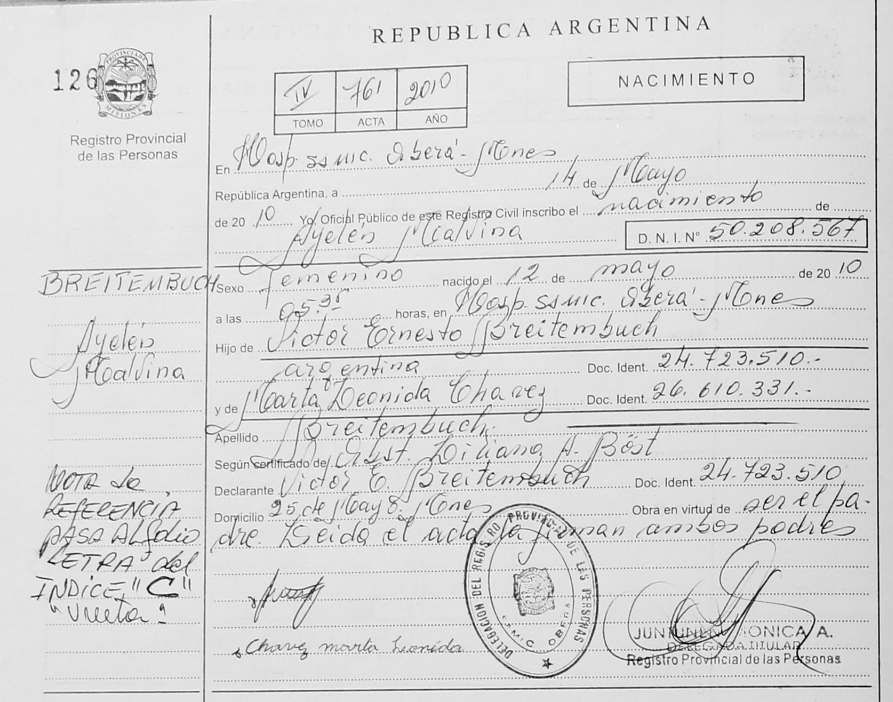 REPUBLICA ARGENTINA
126
PROVINCIA DE MISIONES
Registro Provincial
de las Personas
IV 761 2010
TOMO ACTA AÑO
NACIMIENTO
En Hosp. ssmic. Oberá - Mnes
República Argentina, a 14 de Mayo
de 2010 Yo Oficial Público de este Registro Civil inscribo el nacimiento de
Ayelén Malvina D.N.I. N° 50.208.567
Sexo femenino nacido el 12 de mayo de 2010
a las 05.35 horas, en Hosp ssmic. Oberá - Mnes
Hijo de Victor Ernesto Breitembuch
argentina Doc. Ident. 24.723.510.-
y de Marta Leonida Chavez Doc. Ident. 26.610.331.-
Apellido Breitembuch.
Según certificado de Obst. Liliana A. Böst
Declarante Victor E. Breitembuch Doc. Ident. 24.723.510
Domicilio 25 de Mayo. Mnes Obra en virtud de ser el pa-
dre. Leida el acta la firman ambos padres
BREITEMBUCH
Ayelén
Malvina
NOTA de
REFERENCIA
PASA AL folio
LETRA del
INDICE "C"
"Vuelta"
Chavez marta Leonida
DELEGACION DEL REGISTRO PROVINCIAL DE LAS PERSONAS
SAMIC OBERA
MONICA A.
DELEGADA TITULAR
Registro Provincial de las Personas